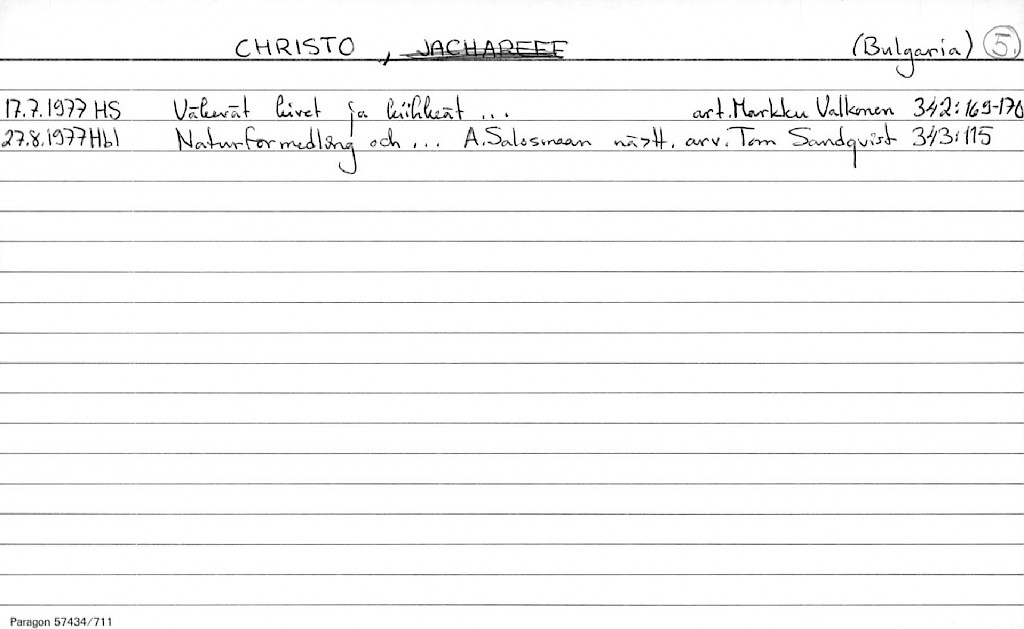 CHRISTO, JACHAREFF (Bulgaria) 5.
17.7.1977 HS Väkevät kivet ja kiihkeät ... art. Markku Valkonen 342:169-170
27.8.1977 Hbl Naturförmedling och ... A. Salosmaan näytt. arv. Tom Sandqvist 343:115
Paragon 57434/711